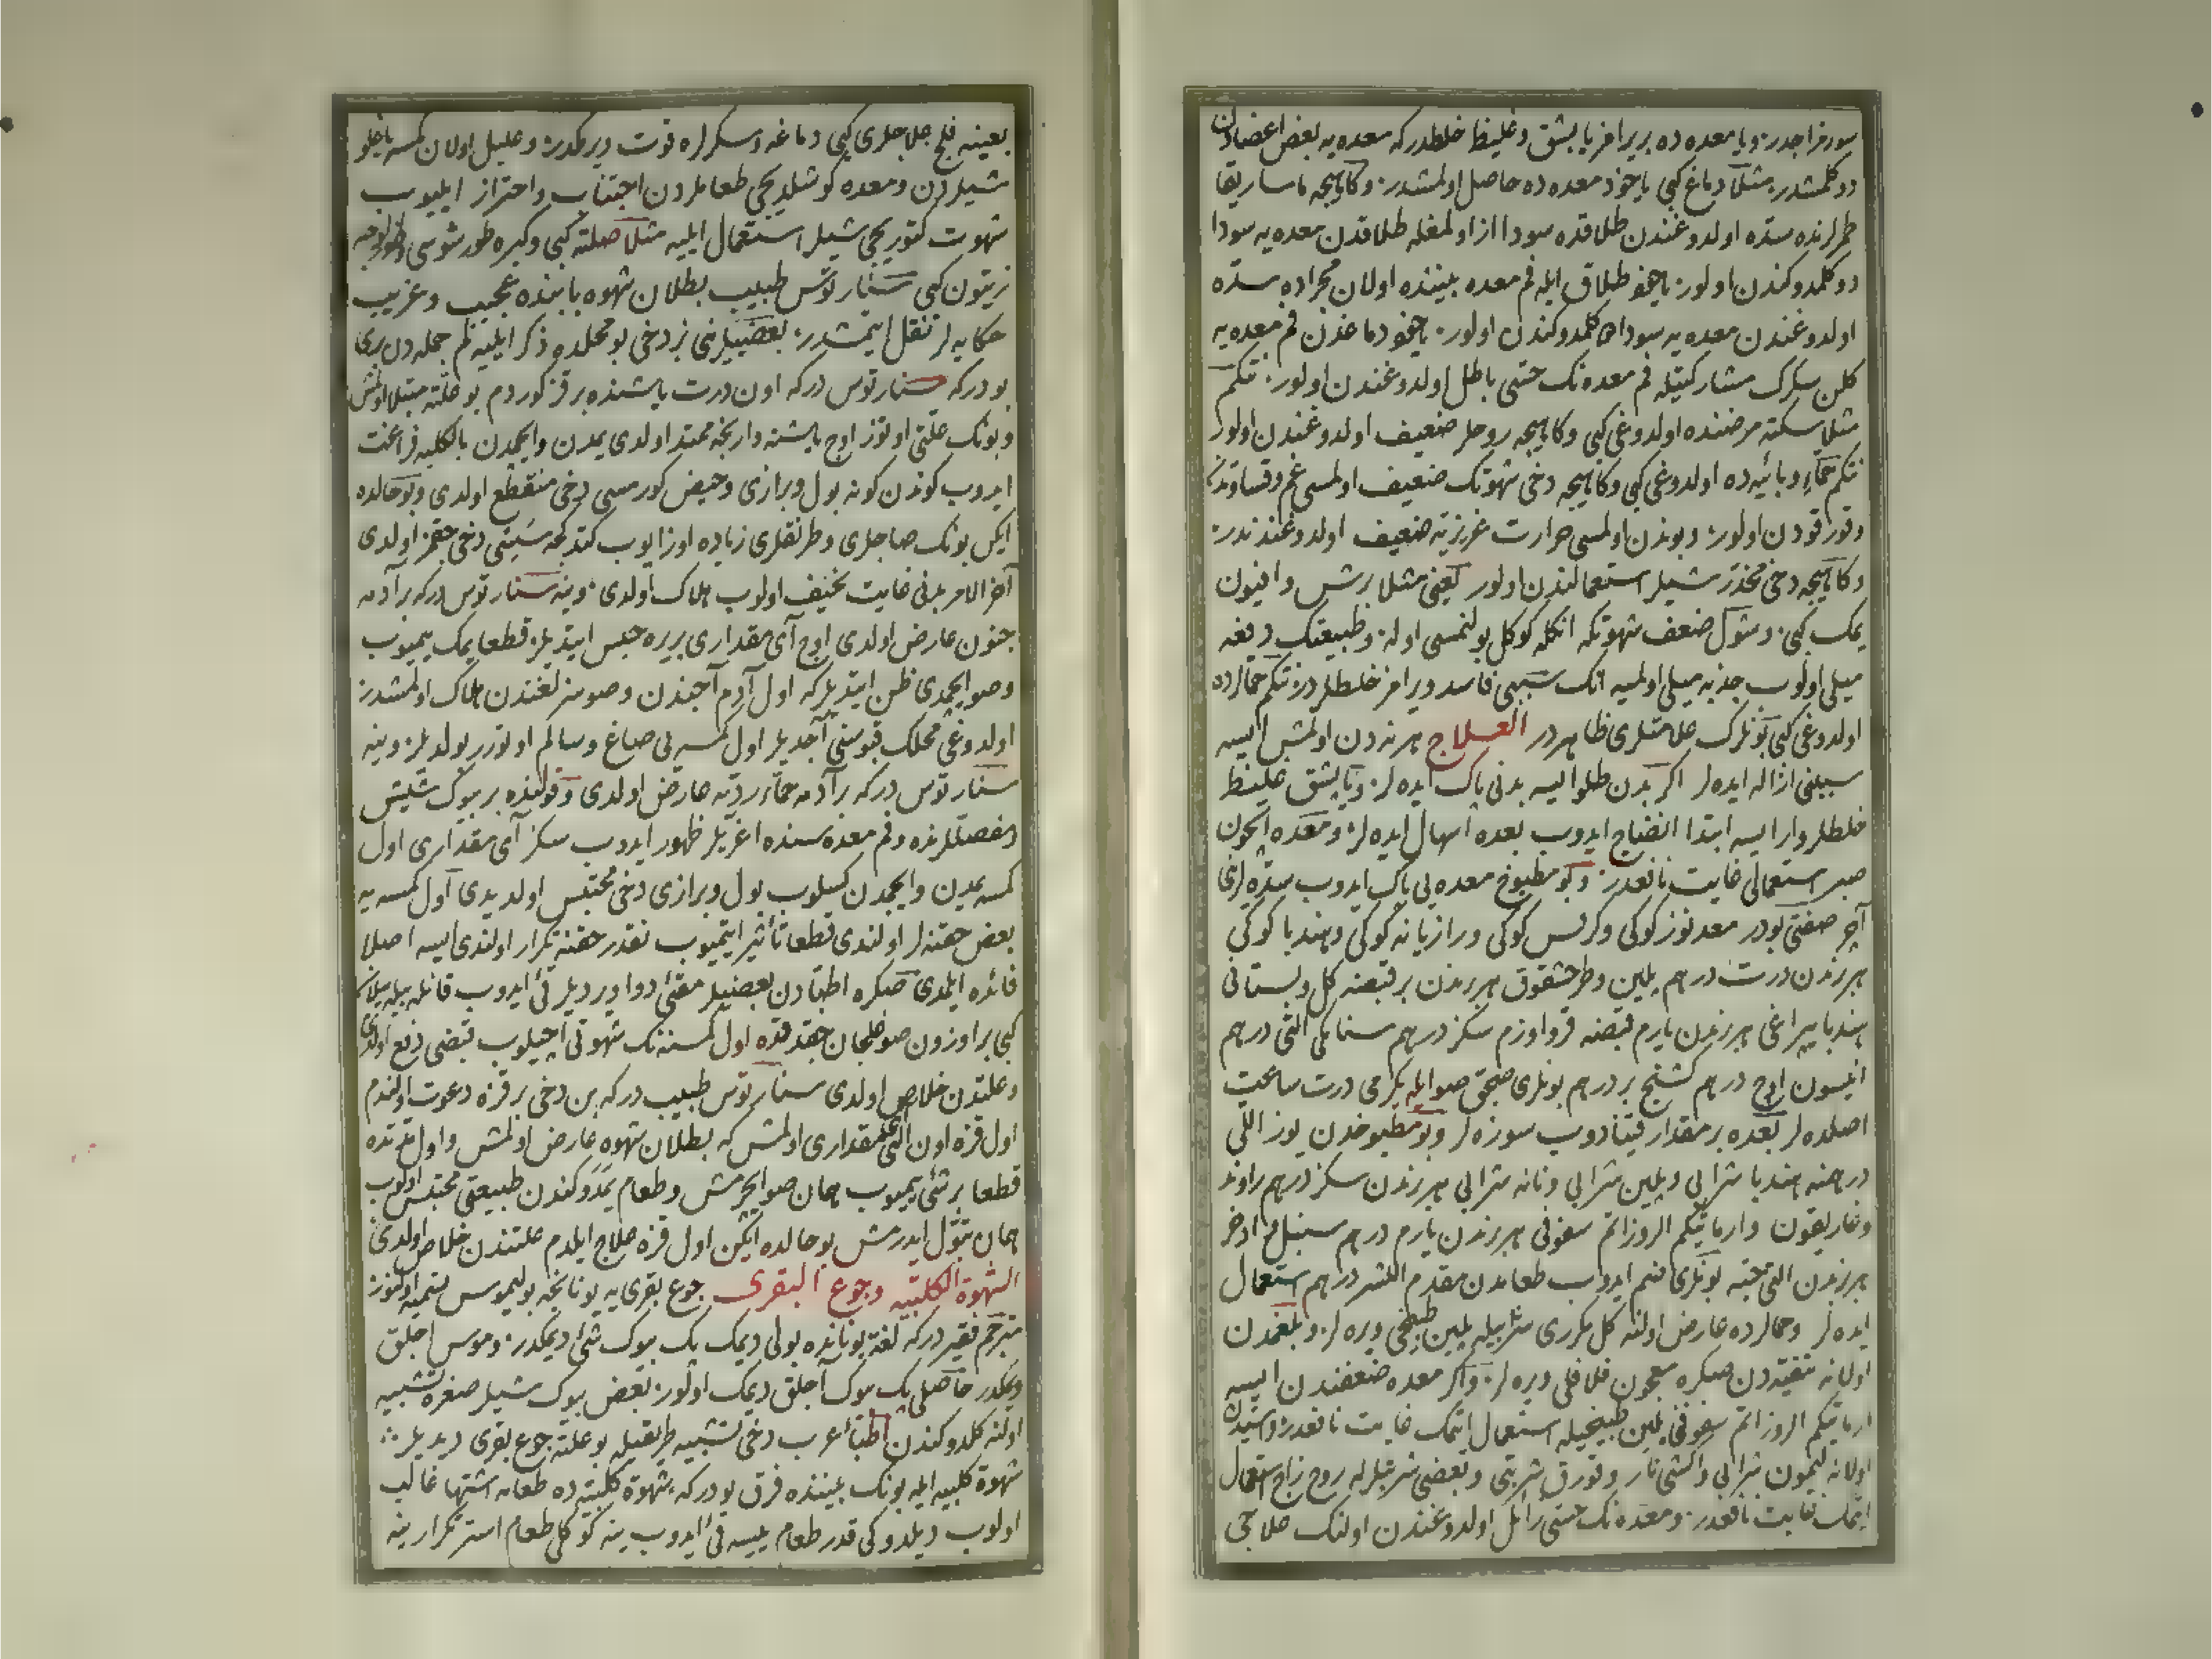 سوء مزاجدر ويا معده ده بر يرامز يابشق وغليظ خلطدر كه معده يه بعض اعضادن
دوكلمشدر مثلا دماغ كبی ياخود معده ده حاصل اولمشدر وكاهيجه ماساريقا
طمرلرنده سده اولدوغندن طلاقده سودا از اولمغله طلاقدن معده يه سودا
دوكلمدوكندن اولور ياخود طلاق ايله فم معده بيننده اولان مجراده سده
اولدوغندن معده يه سودا كلمدوكندن اولور ياخود دماغدن فم معده يه
كلن سكرك مشاركتيله فم معده نك حسی باطل اولدوغندن اولور نتكم
مثلا سكته مرضنده اولدوغی كبی وكاهيجه روحلر ضعيف اولدوغندن اولور
نتكم حماء وبائيه ده اولدوغی كبی وكاهيجه دخی شهوتك ضعيف اولمسی غم وقساوتدن
وقورقودن اولور وبوندن اولمسی حرارت غريزيه ضعيف اولدوغندندر
وكاهيجه دخی مخدر شيلر استعمالندن اولور يعنی مثلا برش وافيون
يمك كبی وشول ضعف شهوتكه انكله كوكل بولنمسی اوله وطبيعتك دفعه
ميلی اولوب جذبه ميلی اولميه انك سببی فاسد ويرامز خلطلردر نتكم حمالرده
اولدوغی كبی بونلرك علامتلری ظاهردر العلاج هر نه دن اولمش ايسه
سببنی ازاله ايده لر اكر بدن طلو ايسه بدنی پاك ايده لر ويابشق غليظ
خلطلر وار ايسه ابتدا انضاج ايدوب بعده اسهال ايده لر ومعده ايچون
صبر استعمالی غايت نافعدر وبو مطبوخ معده يی پاك ايدوب سده لری
آچر صفتی بودر معدنوز كوكی وكرفس كوكی ورازيانه كوكی وهندبا كوكی
هر برندن درت درهم پلين وطرخشقوق هر برندن بر قبضه كل وبستانی
هندبا يپراغی هر برندن يارم قبضه قرو اوزم سكز درهم سنا مكی التی درهم
انيسون اوچ درهم كشنج بر درهم بونلری صيجق صو ايله يكرمی درت ساعت
اصلده لر بعده بر مقدار قيناdوب سوزه لر وبو مطبوخدن يوز اللی
درهمنه هندبا شرابی وپلين شرابی ونانه شرابی هر برندن سكز درهم راوند
وغاريقون وارماتيكم الروزاتم سفوفی هر برندن يارم درهم سنبل واذخر
هر برندن التی حبه بونلری ضم ايدوب طعامدن مقدم اللشر درهم استعمال
ايده لر وحمالرده عارض اولنه كل مكرری شرابيله پلين طبيخی ويره لر وبلغمدن
اولانه تنقيه دن صكره معجون فلافلی ويره لر واكر معده ضعفندن ايسه
ارماتيكم الروزاتم سفوفی پلين طبيخيله استعمال ايتمك غايت نافعدر
اولانه ليمون شرابی واكشی نار وقورق شربتی وبعضی شربتلرله روح زاج استعمال
ايتمك غايت نافعدر ومعده نك حسی زائل اولدوغندن اولنك علاجی
بعينه فلج علاجلری كبی دماغه وسكرلره قوت ويرمكدر وعليل اولان كمسه ياغلو
شيلردن ومعده كوشلديجی طعاملردن اجتناب واحتراز ايليوب
شهوت كتوريجی شيلر استعمال ايليه مثلا صلته كبی وكبره طورشوسی
زيتون كبی سنارتوس طبيب بطلان شهوه بابنده عجيب وغريب
حكايه لر نقل ايتمشدر بعضيلرنی بز دخی بو محلده ذكر ايليه لم جمله دن بری
بودركه سنارتوس دركه اون درت ياشنده بر قز كوردم بو علته مبتلا اولمش
وبونك علتی اوتوز اوچ ياشنه وارنجه ممتد اولدی يمدن وايچمدن بالكليه فراغت
ايدوب كوندن كونه بول وبرازی وحيض كورمسی دخی منقطع اولدی وبو حالده
ايكن بونك صاچلری وطرنقلری زياده اوزايوب كتدكجه سسی دخی چقمز اولدی
آخر الامر بدنی غايت نحيف اولوب هلاك اولدی وينه سنارتوس دركه بر آدمه
جنون عارض اولدی اوچ آی مقداری بر يره حبس ايتديلر قطعا يمك يميوب
وصو ايچمدی ظن ايتديلر كه اول آدم آجندن وصوسزلغندن هلاك اولمشدر
اولدوغی محلك قپوسنی آچديلر اول كمسه يی صاغ وسالم اوتورر بولديلر وينه
سنارتوس دركه بر آدمه حماء رديه عارض اولدی وقولنده بر بيوك شيش
ومفصللرنده وفم معده سنده اغريلر ظهور ايدوب سكز آی مقداری اول
كمسه يمدن وايچمدن كسلوب بول وبرازی دخی محتبس اولديدی اول كمسه يه
بعض حقنه لر اولندی قطعا تأثير ايتميوب نقدر حقنه تكرار اولندی ايسه اصلا
فائده ايلمدی صكره اطبادن بعضيلر مقیء دوا ويرديلر قیء ايدوب قانله بيله يلان
كبی بر اوزون صوغلجان چقدقده اول كمسنه نك شهوتی آچيلوب قبضی دفع اولدی
وعلتدن خلاص اولدی سنارتوس طبيب دركه بن دخی بر قزه دعوت اولندم
اول قزه اون التی كون مقداری اولمش كه بطلان شهوه عارض اولمش واول مدتده
قطعا بر شیء يميوب همان صو ايچرمش وطعام يمدوكندن طبيعتی محتبس اولوب
همان تبول ايدرمش بو حالده ايكن اول قزه علاج ايلدم علتندن خلاص اولدی
الشهوة الكلبيه وجوع البقری جوع بقری يه يونانجه بوليموس تسميه اولنور
مترجم فقير دركه لغة يونانده بولی ديمك پك بيوك شیء ديمكدر وموس اجلق
ديمكدر حاصلی پك بيوك آجلق ديمك اولور بعض بيوك شيلر صغره تشبيه
اولنه كلدوكندن اطبا عرب دخی تشبيه طريقيله بو علته جوع بقری ديديلر
شهوة كلبيه ايله بونك بيننده فرق بودركه شهوة كلبيه ده طعامه اشتها غالب
اولوب ديلدوكی قدر طعام ييسه قیء ايدوب ينه كوكلی طعام استر تكرار ينه